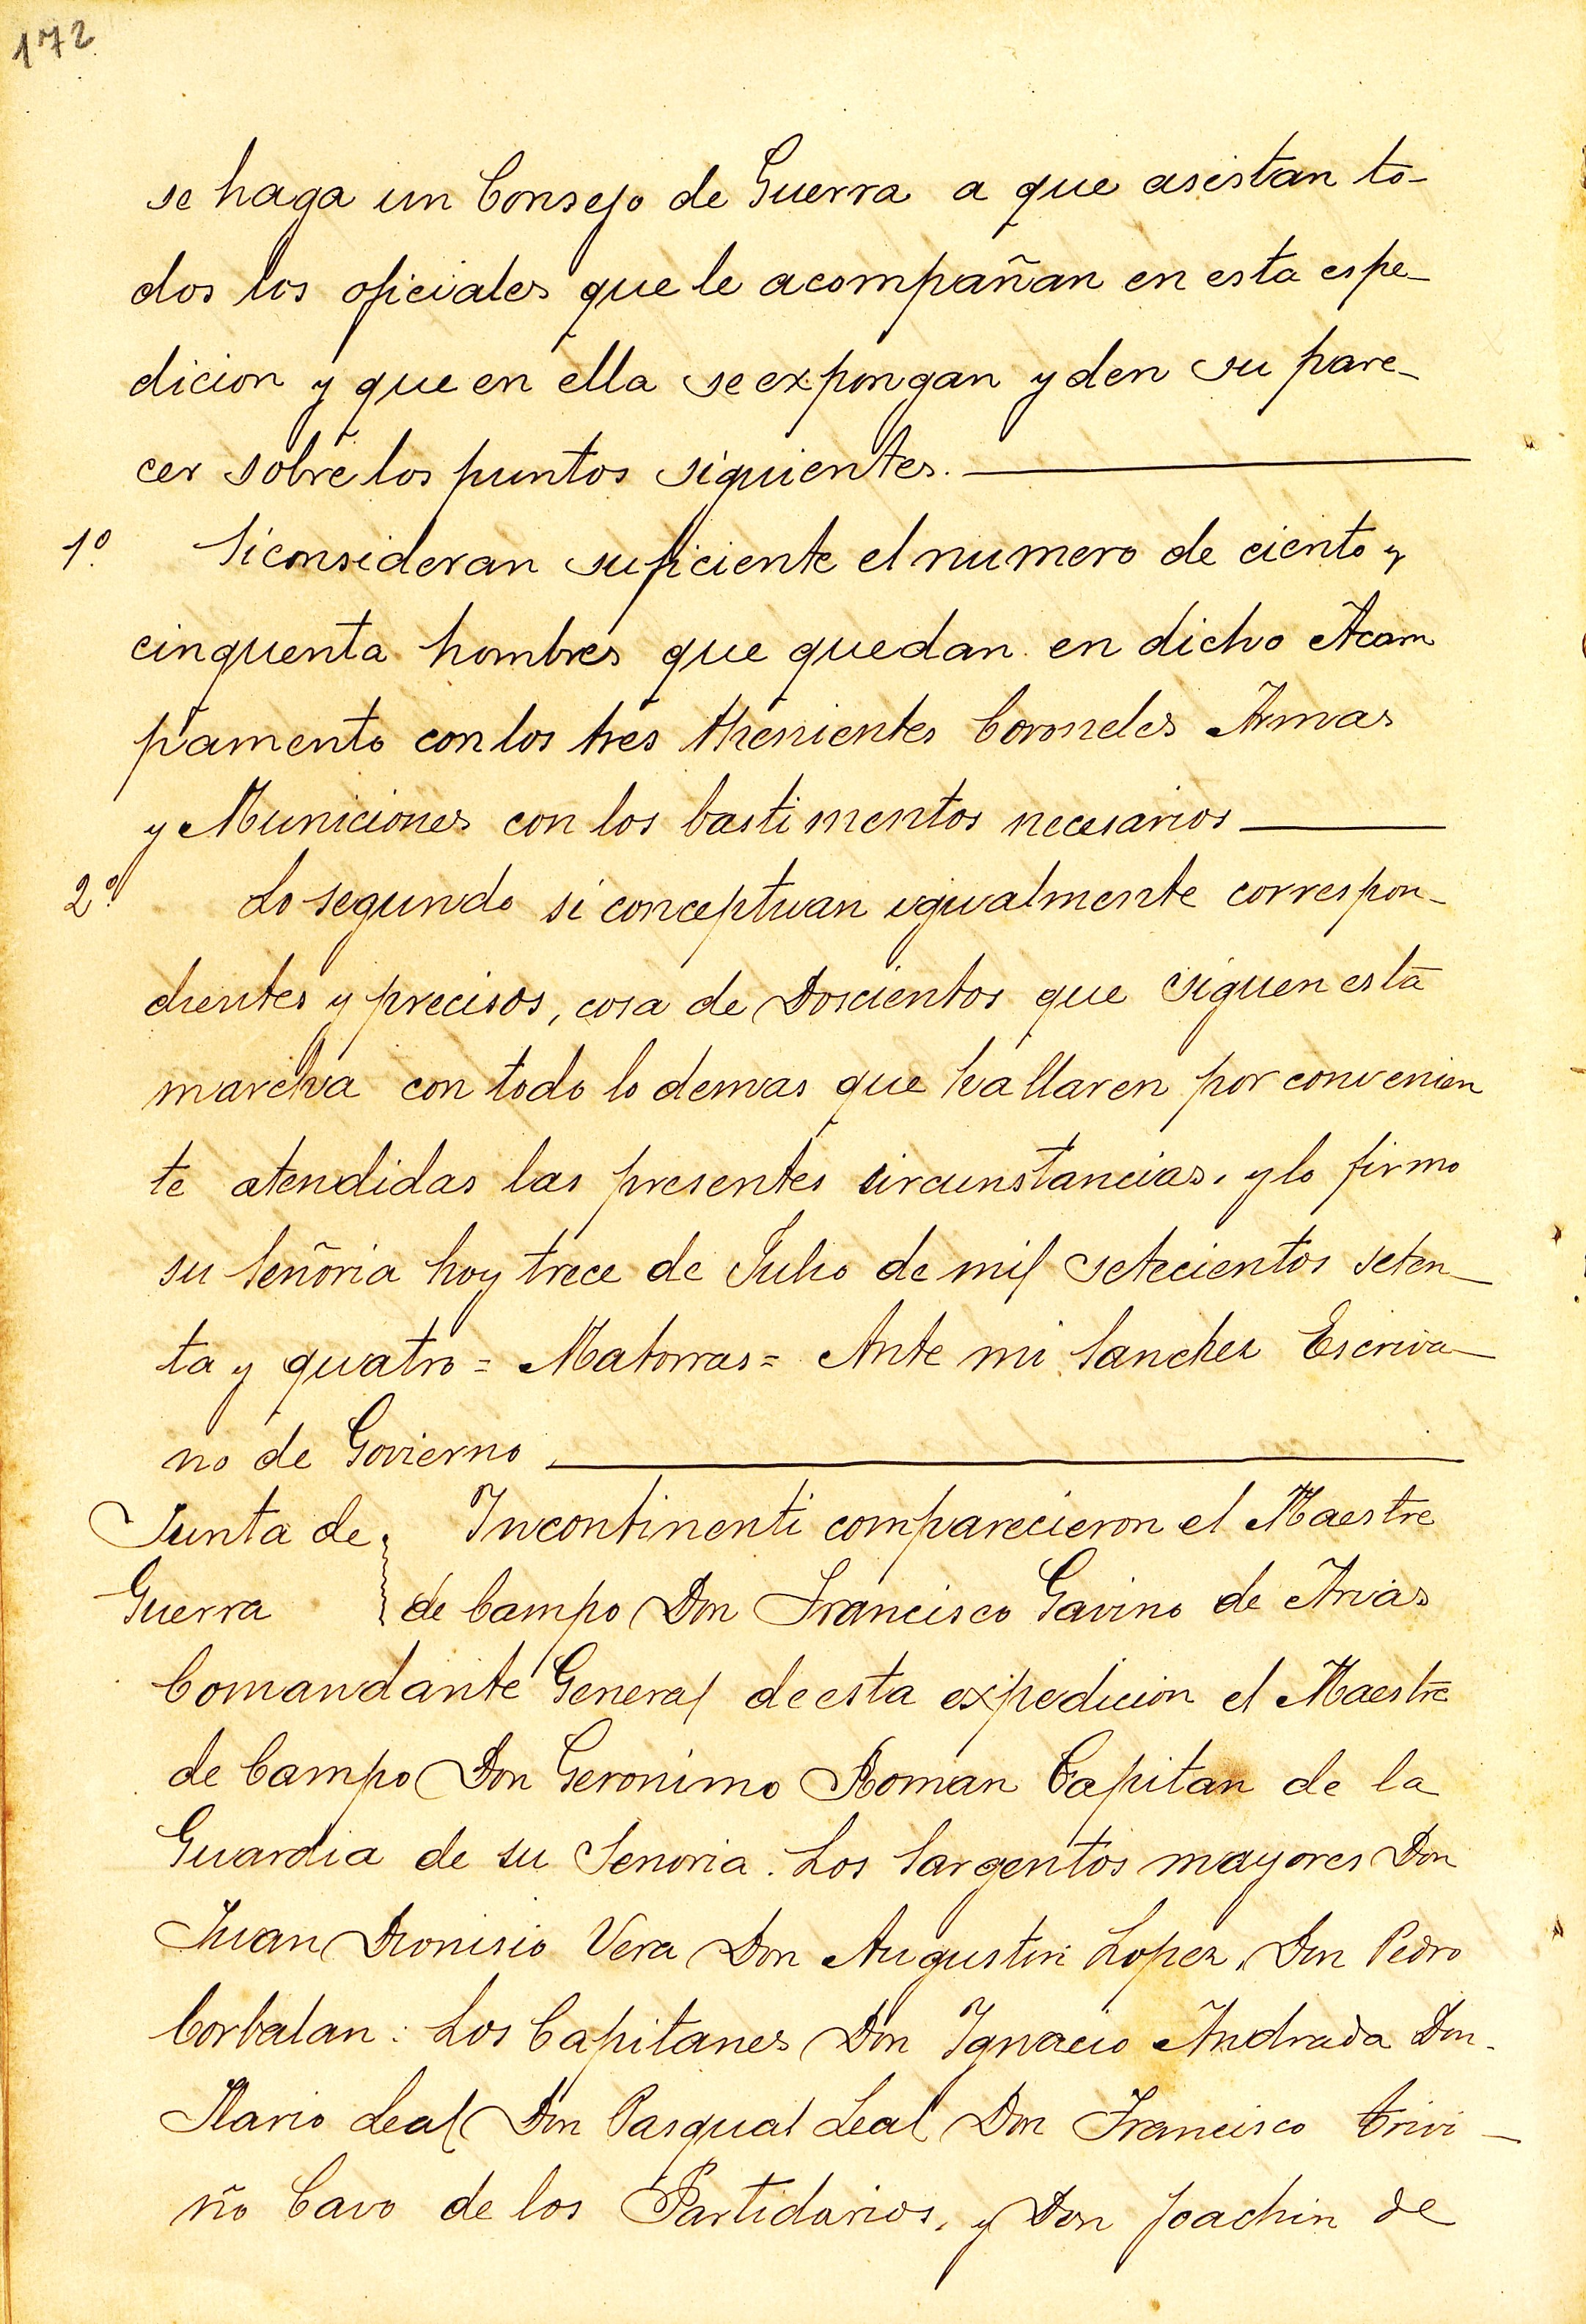 172
se haga un Consejo de Guerra a que asistan to-
dos los oficiales que le acompañan en esta espe-
dicion y que en ella se expongan y den su pare-
cer sobre los puntos siguientes.
1º Si consideran suficiente el numero de ciento y
cinquenta hombres que quedan en dicho Acam
pamento con los tres Thenientes Coroneles Armas
y Municiones con los bastimentos necesarios
2º Lo segundo si conceptuan igualmente correspon-
dientes y precisos, cosa de Doscientos que siguen esta
marcha con todo lo demas que hallaren por convenien
te atendidas las presentes circunstancias, y lo firmo
su Señoria hoy trece de Julio de mil setecientos seten-
ta y quatro = Matorras = Ante mi Sanchez Escriva-
no de Govierno
Junta de Incontinenti comparecieron el Maestre
Guerra de Campo Don Francisco Gavino de Arias
Comandante General de esta expedicion el Maestre
de Campo Don Geronimo Roman Capitan de la
Guardia de su Senoria. Los Sargentos mayores Don
Juan Dionisio Vera Don Augustin Lopez, Don Pedro
Corbalan: Los Capitanes Don Ignacio Andrada Don.
Ilario Leal Don Pasqual Leal Don Francisco Trivi-
ño Cavo de los Partidarios, y Don Joachin de